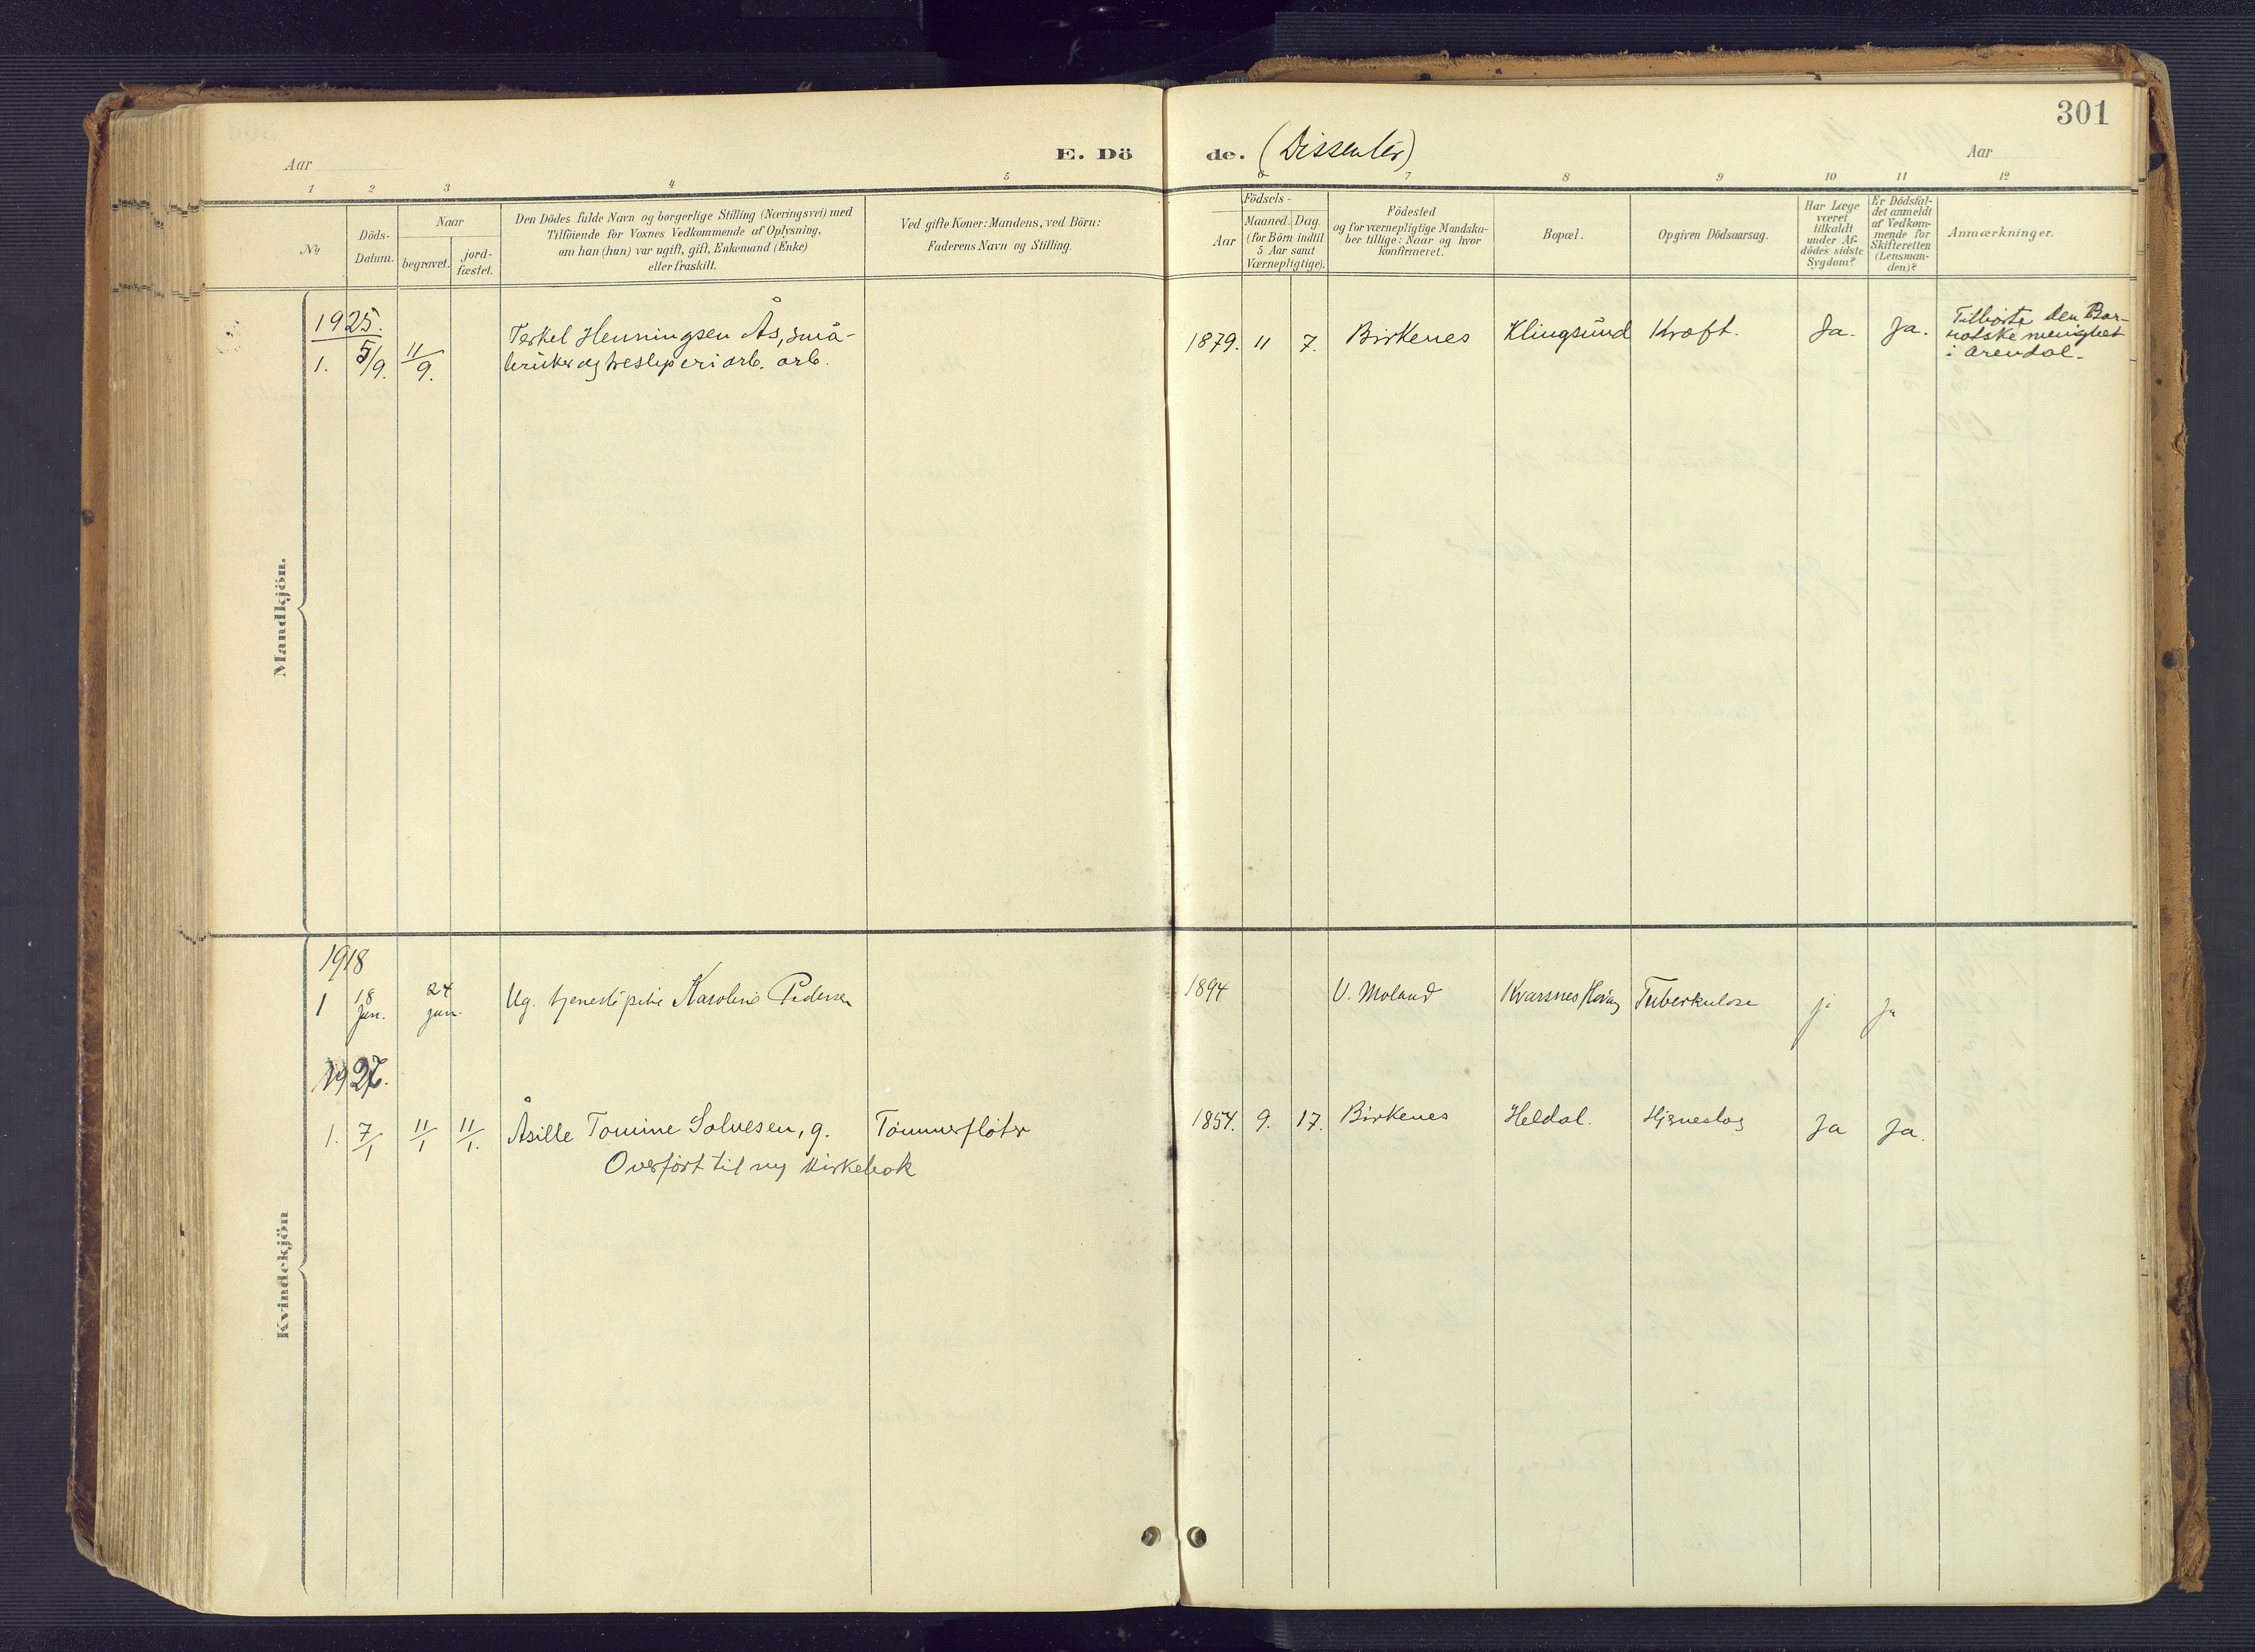 301
Aar
E. Dö de. (Dissenter)
Aar
1 2 3 4 5 6 7 8 9 10 11 12
No
Döds-
Datum.
Naar
begravet.
jord-
fæstet.
Den Dödes fulde Navn og borgerlige Stilling (Næringsvei) med
Tilföiende for Voxnes Vedkommende af Oplysning,
om han (hun) var ugift, gift, Enkemand (Enke)
eller fraskilt.
Ved gifte Koner: Mandens, ved Börn:
Faderens Navn og Stilling.
Födsels-
Aar
Maaned. Dag.
(for Börn indtil
5 Aar samt
Værnepligtige).
Födested
og for værnepligtige Mandska-
ber tillige: Naar og hvor
konfirmeret.
Bopæl.
Opgiven Dödsaarsag.
Har Læge
været
tilkaldt
under Af-
dödes sidste
Sygdom?
Er Dödsfal-
det anmeldt
af Vedkom-
mende for
Skifteretten
(Lensman-
den)?
Anmærkninger.
Mandkjön.
1925.
1. 5/9. 11/9.
Terkel Henningsen Ås, små-
bruker og
arb.
1879. 11 7. Birkenes Klingsund Kræft. Ja. Ja.
Tilhørte den Bap-
tistiske menighet
i Arendal.
Kvindekjön
1918
1 18 Jan. 24 jan. Ug. tjenestepike Karoline Pedersen 1894 V. Moland Kvarsnes Høvåg Tuberkulose ja ja
1927.
1. 7/1 11/1 11/1. Åsille Tomine Solvesen, g. Tømmerfløter 1854. 9. 17. Birkenes Heldal. Hjerneslag Ja Ja.
Overført til ny kirkebok